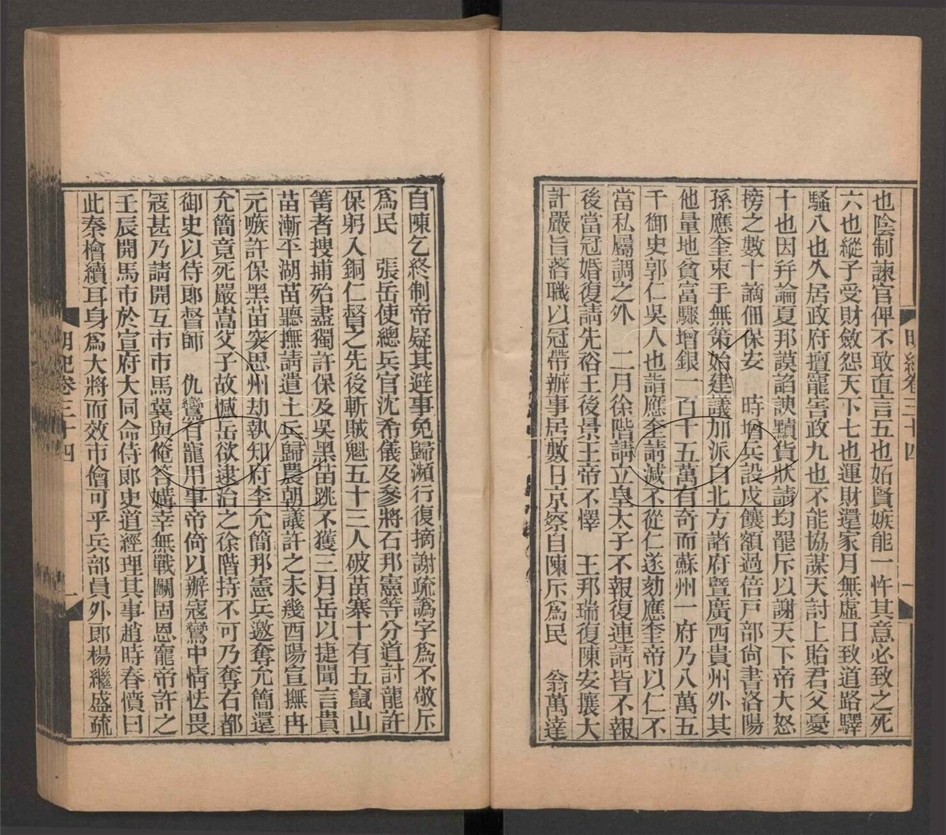 也陰制諫官俾不敢直言五也妬賢嫉能一忤其意必致之死
六也縱子受財斂怨天下七也運財還家月無虛日致道路驛
騷八也久居政府擅寵害政九也不能協謀天討上貽君父憂
十也因幷論夏邦謨諂諛黷貨狀請均罷斥以謝天下帝大怒
搒之數十謫佃保安 時增兵設戍饟額過倍戸部尙書洛陽
孫應奎束手無策始建議加派自北方諸府暨廣西貴州外其
他量地貧富驟增銀一百十五萬有奇而蘇州一府乃八萬五
千御史郭仁吳人也詣應奎請減不從仁遂劾應奎帝以仁不
當私屬調之外 二月徐階請立皇太子不報復連請皆不報
後當冠婚復請先裕王後景王帝不懌 王邦瑞復陳安攘大
計嚴旨落職以冠帶辦事居數日京察自陳斥爲民 翁萬達
明紀卷三十四 一
自陳乞終制帝疑其避事免歸瀕行復摘謝疏譌字爲不敬斥
爲民 張岳使總兵官沈希儀及參將石邦憲等分道討龍許
保躬入銅仁督之先後斬賊魁五十三人破苗寨十有五竄山
箐者搜捕殆盡獨許保及吳黑苗跳不獲三月岳以捷聞言貴
苗漸平湖苗聽撫請遣土兵歸農朝議許之未幾酉陽宣撫冉
元嗾許保黑苗突思州劫執知府李允簡邦憲兵邀奪允簡還
允簡竟死嚴嵩父子故憾岳欲逮治之徐階持不可乃奪右都
御史以侍郎督師 仇鸞有寵用事帝倚以辦寇鸞中情怯畏
寇甚乃請開互市市馬冀與俺答媾幸無戰鬬固恩寵帝許之
壬辰開馬市於宣府大同命侍郎史道經理其事趙時春憤曰
此秦檜續耳身爲大將而效市儈可乎兵部員外郎楊繼盛疏
明紀卷三十四 一